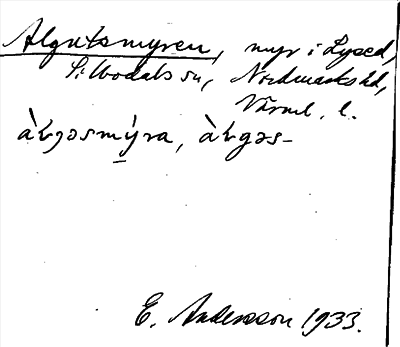 Algutsmyren, myr i Lysed,
Silbodals sn, Nordmarks hd,
Värml. l.
àl̀gəsmýra, àl̀gəs-
E. Andersson 1933.